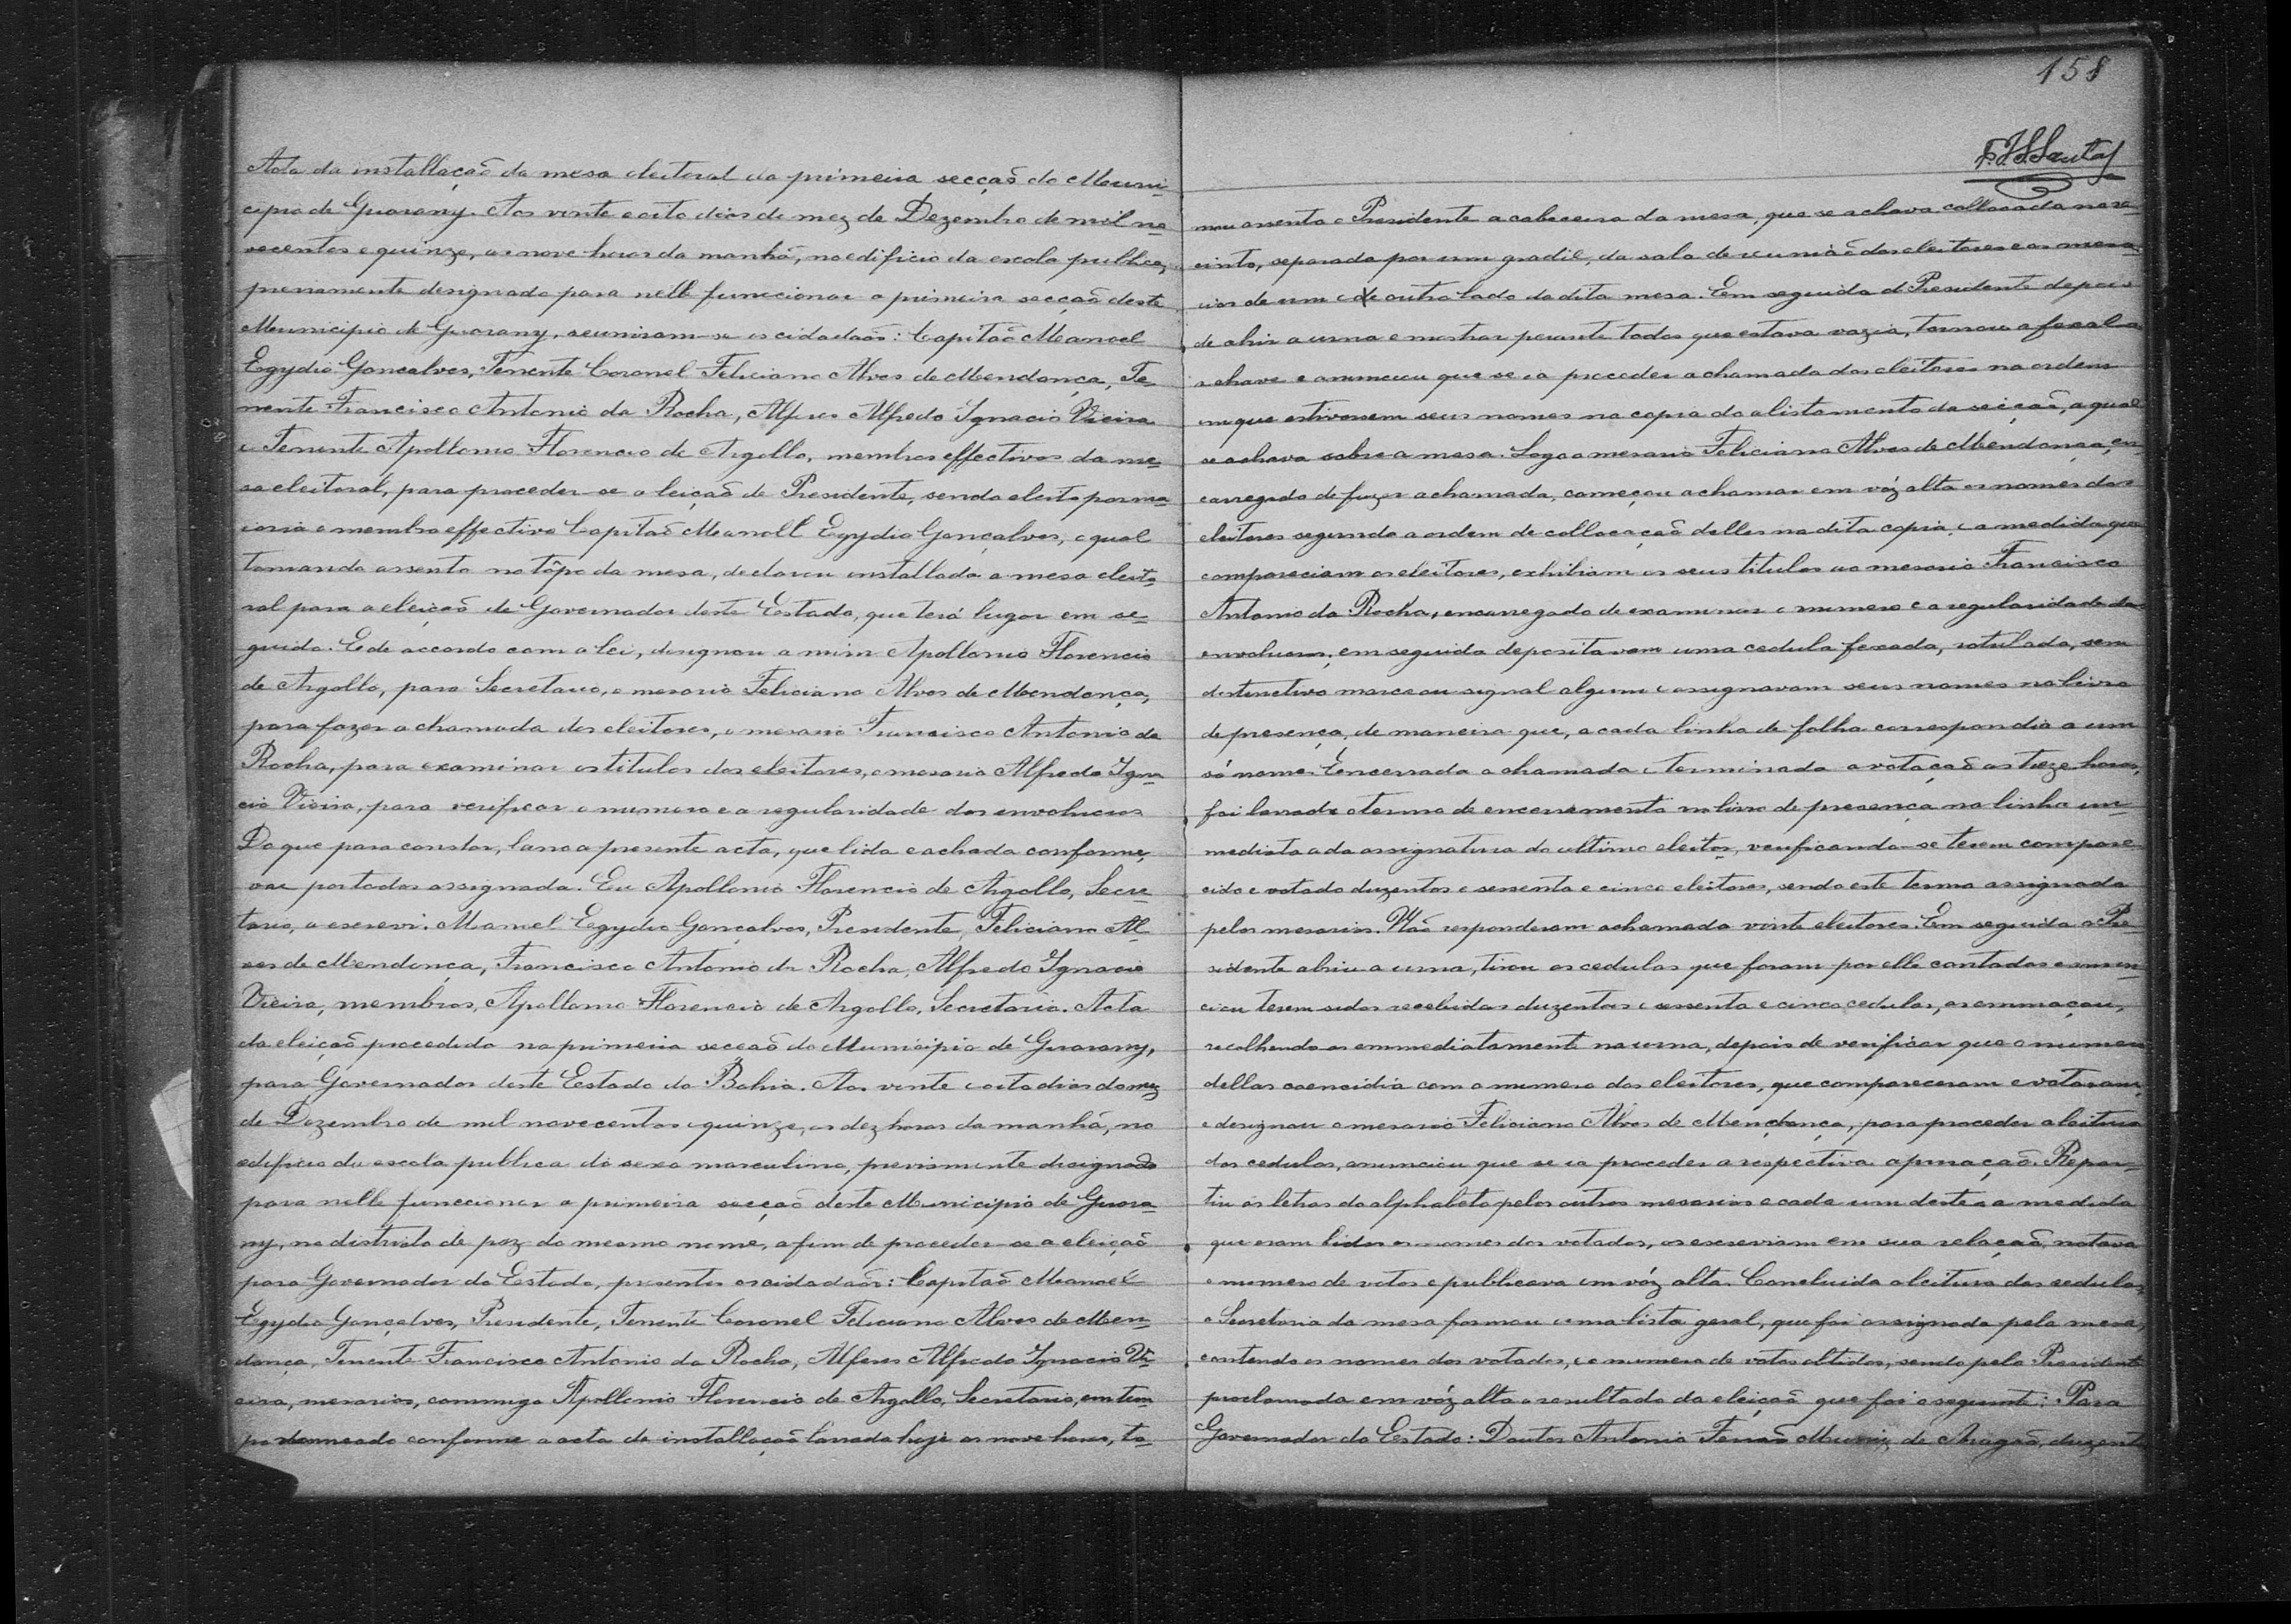 Acta da installação da mesa eleitoral da primeira secção do Muni-
cipio de Guarany. Aos vinte e oito dias do mez de Dezembro de mil no-
vecentos e quinze, as nove horas da manhã, no edificio da escola publica,
previamente designado para nelle funccionar a primeira secção deste
Municipio de Guarany, reuniram-se os cidadãos: Capitão Manoel
Egydio Gonçalves, Tenente Coronel Feliciano Alves de Mendonça, Te-
nente Francisco Antonio da Rocha, Alferes Alfredo Ignacio Vieira
e Tenente Apollonio Florencio de Argollo, membros effectivos da me-
sa eleitoral, para proceder-se a leição de Presidente, sendo eleito por ma
ioria o membro effectivo Capitão Manoell Egydio Gonçalves, o qual
tomando assento no tôpo da mesa, declarou installada a mesa eleito
ral para a eleição de Governador deste Estado, que terá lugar em se-
guida. E de accordo com a lei, designou a mim Apollonio Florencio
de Argollo, para Secretario, o mesario Feliciano Alves de Mendonça,
para fazer a chamada dos eleitores, o mesario Francisco Antonio da
Rocha, para examinar os titulos dos eleitores, o mesario Alfredo Igna
cio Vieira, para verificar o numero e a regularidade dos envolucros
Do que para constar, lavro a presente acta, que lida e achada conforme,
vae por todos assignada. Eu Apollonio Florencio de Argollo, Secre-
tario, a escrevi. Manoel Egydio Gonçalves, Presidente, Feliciano Al-
ves de Mendonça, Francisco Antonio da Rocha, Alfredo Ignacio
Vieira, membros, Apollonio Florencio de Argollo, Secretario. Acta
da eleição procedida na primeira secção do Municipio de Guarany,
para Governador deste Estado da Bahia. Aos vinte e oito dias do mez
de Dezembro de mil novecentos e quinze, as dez horas da manhã, no
edificio da escola publica do sexo masculino, previamente designado
para nelle funccionar a primeira secção deste Municipio de Guara-
ny, no districto de paz do mesmo nome, afim de proceder-se a eleição
para Governador do Estado, presentes os cidadãos: Capitão Manoel
Egydio Gonçalves, Presidente, Tenente Coronel Feliciano Alves de Men-
donça, Tenente Francisco Antonio da Rocha, Alferes Alfredo Ignacio Vi-
eira, mesarios, commigo Apollonio Florencio de Argollo, Secretario, em tem
po nomeado conforme a acta de installação lavrada hoje as nove horas, to-
158
mou assento o Presidente a cabeceira da mesa, que se achava collocada no re-
cinto, separada por um gradil, da sala de reunião dos eleitores e os mesa-
rios de um e de outro lado da dita mesa. Em seguida o Presidente depois
de abrir a urna e mostrar perante todos que estava vazia, tornou a fexal-a
a chave e anunciou que se ia proceder a chamada dos eleitores na ordem
em que estivessem seus nomes na copia do alistamento da secção, a qual
se achava sobre a mesa. Logo o mesario Feliciano Alves de Mendonça, en-
carregado de fazer a chamada, começou a chamar em vóz alta os nomes dos
eleitores segundo a ordem de collocação delles na dita copia, e a medida que
compareciam os eleitores, exhibiam os seus titulos ao mesario Francisco
Antonio da Rocha, encarregado de examinar o numero e a regularidade do
envolucro, em seguida depositavam uma cedula fexada, rotulada, sem
destinctivo marca ou signal algum e assignavam seus nomes no livro
de presença, de maneira que, a cada linha de folha correspondia a um
só nome. Encerrada a chamada e terminada a votação as treze horas,
foi lavrado o termo de encerramento no livro de presença na linha im-
mediata a da assignatura do ultimo eleitor, verificando-se terem compare
cido e votado duzentos e sessenta e cinco eleitores, sendo este termo assignado
pelos mesarios. Não responderam a chamada vinte eleitores. Em seguida o Pre-
sidente abriu a urna, tirou as cedulas que foram por elle contadas e anun
ciou terem sidos recebidas duzentas e sessenta e cinco cedulas, as emmaçou,
recolhendo as emmediatamente na urna, depois de verificar que o numero
dellas coencidia com o numero dos eleitores, que compareceram e votaram,
e designou o mesario Feliciano Alves de Mendonça, para proceder a leitura
das cedulas, anunciou que se ia proceder a respectiva apuração. Repar-
tiu as letras do alphabeto pelos outros mesarios e cada um destes a medida
que eram lidos os nomes dos votados, os escreviam em sua relação, notava
o numero de votos e publicava em vóz alta. Concluida a leitura das cedulas,
o Secretario da mesa formou uma lista geral, que foi assignada pela mesa,
contendo os nomes dos votados, e o numero de votos obtidos, sendo pelo Presidente
proclamado em vóz alta o resultado da eleição que foi o seguinte: Para
Governador do Estado: Doutor Antonio Ferrão Muniz de Aragão, duzent